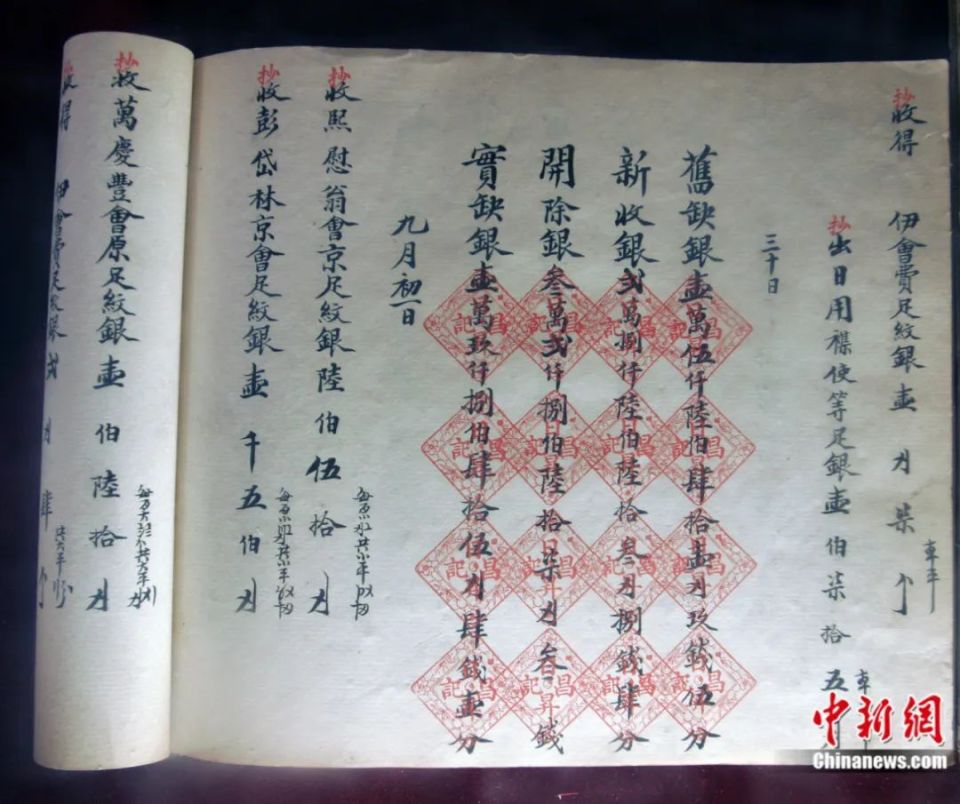 抄收得 伊會費足紋銀壹刄柒亇 車平
抄出日用襍使等足銀壹伯柒拾五 車
三十日
舊缺銀壹萬伍仟陸伯肆拾壹刄玖錢伍分
新收銀弍萬捌仟陸伯陸拾叁刄捌錢肆分
開除銀叁萬弍仟捌伯陸拾柒刄叁錢
實缺銀壹萬玖仟捌伯肆拾伍刄肆錢壹分
九月初一日
抄收熙慰翁會京足紋銀陸伯伍拾刄
抄收彭岱林京會足紋銀壹千五伯刄
抄收萬慶豐會原足紋銀壹伯陸拾刄
收得 伊會費足紋銀弍刄肆亇
中新網
Chinanews.com